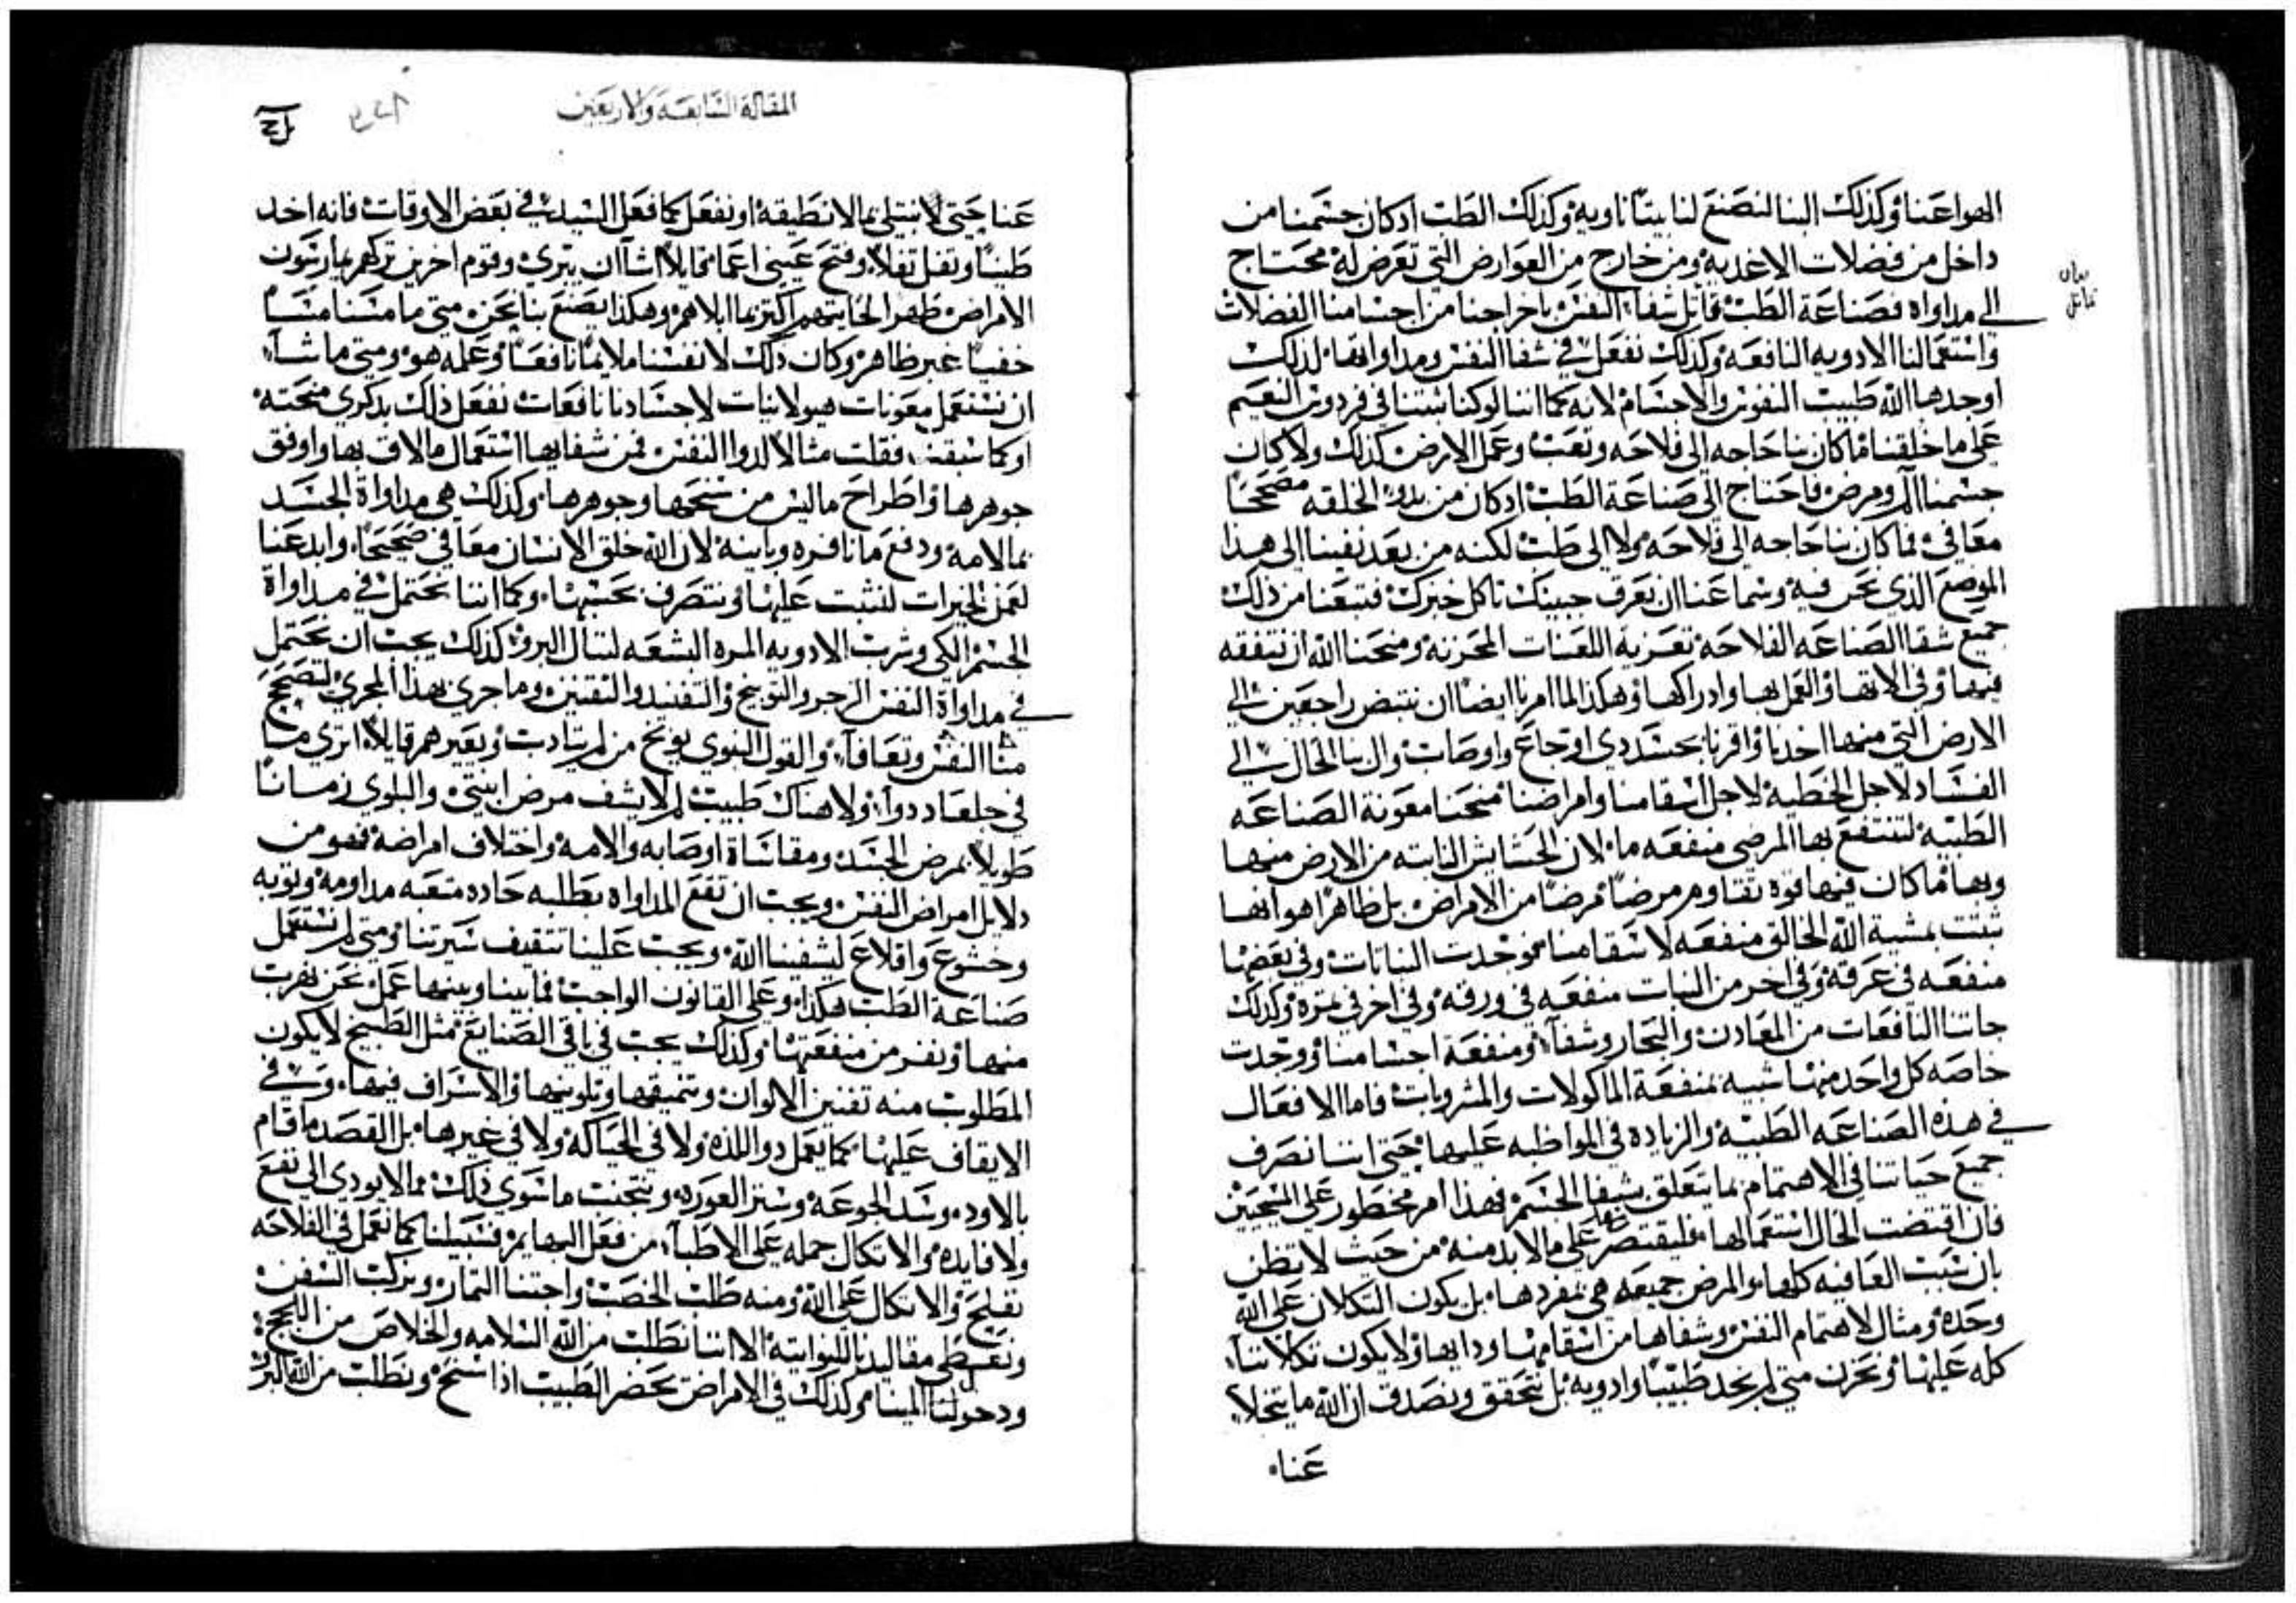 الهوا عنا وكذلك البنا لنصنع لنا بيتًا ناويه وكذلك الطب اد كان جسمنا من
داخل من فضلات الاغديه ومن خارج من العوارض التي تعرض له محتاج
الى مداواه فصناعة الطب تماثل شفا النفس باخراجنا من اجسامنا الفضلات
واستعمالنا الادويه النافعه وكذلك نفعل في شفا النفس ومداواتها لدلك
اوجدها الله طبيب النفوس والاجسام لانه كما اننا لو كنا ثبتنا في فردوس النعيم
على ما خلقنا ما كان بنا حاجه الى فلاحه وتعب وعمل الارض كذلك ولا كان
جسمنا الم ومرض فاحتاج الى صناعة الطب ادكان من بدو الخلقه مصححًا
معافى فما كان بنا حاجه الى فلاحه ولا الى طب لكنه من بعد نفينا الى هدا
الموضع الذي نحن فيه وسماعنا ان بعرق جبينك تاكل خبزك فتبعنا من ذلك
جميع شقا الصناعه الفلاحه تعزية اللعنات المحزنه ومنحنا الله ان نتفقه
فيها وفي الاتها والعمل بها وادراكها وهكذا لما امرنا ايضًا ان ننتض راجعين الى
الارض التي منها اخدنا واقرنا بجسد دي اوجاع واوصاب وال بنا الحال الى
الفساد لاجل الخطيه لاجل اسقامنا وامراضنا منحنا معونة الصناعه
الطبيه لتنتفع بها المرضى منفعه ما لان الحشايش النابته من الارض منها
وبها ما كان فيها قوه تقاوم مرضًا مرضًا من الامراض بل ظاهرًا هو انها
نبتت بمشية الله الخالق منفعه لاسقامنا فوجدت النباتات وفي بعضها
منفعه في عرقه وفي اخر من النبات منفعه في ورقه وفي اخر في تمره وكذلك
جاتنا النافعات من المعادن والبحار وشفآء ومنفعة اجسامنا ووجدت
خاصه كل واحد منها شبيه بمنفعة الماكولات والمشروبات فاما الافعال
في هذه الصناعه الطبيه والزياده في المواظبه عليها حتى اننا نصرف
جميع حياتنا في الاهتمام بما يتعلق بشفا الجسم فهذا امر محظور على المسيحيين
فان اقتضت الحال استعمالها فليقتصر على ما لابد منه من حيث لا تظن
بان سبب العافيه كلها والمرض جميعه هي بمفردها بل يكون التكلان على الله
وحده ومثال لاهتمام النفس وشفاها من اسقامها ودايها ولا يكون تكلاننا
كله عليها ونحزن متى لم نجد طبيبًا وادويه بل نتحقق ونصدق ان الله ما يتخلا
عنا
بيان
تماثل
المقالة السابعة والاربعين
عنا حتى لا نبتلي بما لا نطيقه او نفعل كما فعل السيد في بعض الاوقات فانه اخد
طينًا وتفل تفلًا وفتح عيني اعما قايلًا اشاآن يبرى وقوم اخرين تركهم يمارسون
الامراض طهر الخايتهم اكتر مما ابلاهم وهكذا يصنع بنا نحن متى ما مسنا مسًا
خفيًا غير ظاهر وكان ذلك لانفسنا ملايمًا نافعًا وعلمه هو ومتى ما شآء
ان نستعمل معونات هيولانيات لاجسادنا نافعات نفعل ذلك بدكرى منحته
اوكما سبقت فقلت مثالًا لدوا النفس فمن شفايها استعمال ما لاق بها واوفق
جوهرها واطراح ما ليس من سنحها وجوهرها وكذلك هي مداواة الجسد
بمالامه ودفع ما نافره وباينه لان الله خلق الانسان معافى صحيحًا وابدعنا
لعمل الخيرات لنثبت عليها ونتصرف بحسبها وكما اننا نحتمل في مداواة
الجسم الكي وشرب الادويه المره البشعه لننال البرو كذلك يجب ان نحتمل
في مداواة النفس الزجر والتوبيخ والتفنيد والتقنين وما جرى بهذا المجرى لتصحح
منا النفس وتعافآ والقول النبوي يوبخ من لم يتادب ويعيرهم قايلًا اترى ما
في جلعاد دوآ ولا هناك طبيب لم لا يشف مرض ابنتي والبلوى زمانًا
طويلًا بمرض الجسد ومقاساة اوصابه والامه واختلاف امراضه فهو من
دلايل امراض النفس ويجب ان تقع المداواه بطلبه حاده متعبه مداومه وتوبه
وخشوع واقلاع ليشفينا الله ويجب علينا تتقيف سيرتنا ومتى لم نستعمل
صناعة الطب هكذا وعلى القانون الواجب فما بيننا وبينها عمل نحن نهرب
منها ونفر من منفعتها وكذلك يجب في باقي الصنايع مثل الطبيخ لا يكون
المطلوب منه تفنين الالوان وتنميقها وتلوينها والاسراف فيها وفي
الايقاف عليها كما يعمل دو اللذه ولا في الحياكه ولا في غيرها بل القصد ما قام
بالاود وسد الجوعه وستر العوره ونتجنب ما سوى ذلك مما لا يودي الى نفع
ولا فايده والاتكال جمله على الاطبآء من فعل البهايم فسبيلنا كما نعمل في الفلاحه
نفلح والاتكال على الله ومنه طلب الخصب واجتنا التمار ونركب السفن
ونعطي مقاليدنا للنواتيه الا اننا نطلب من الله السلامه والخلاص من اللجج
ودخولنا المينا وكذلك في الامراض نحضر الطبيب اذا سنح ونطلب من الله البرو